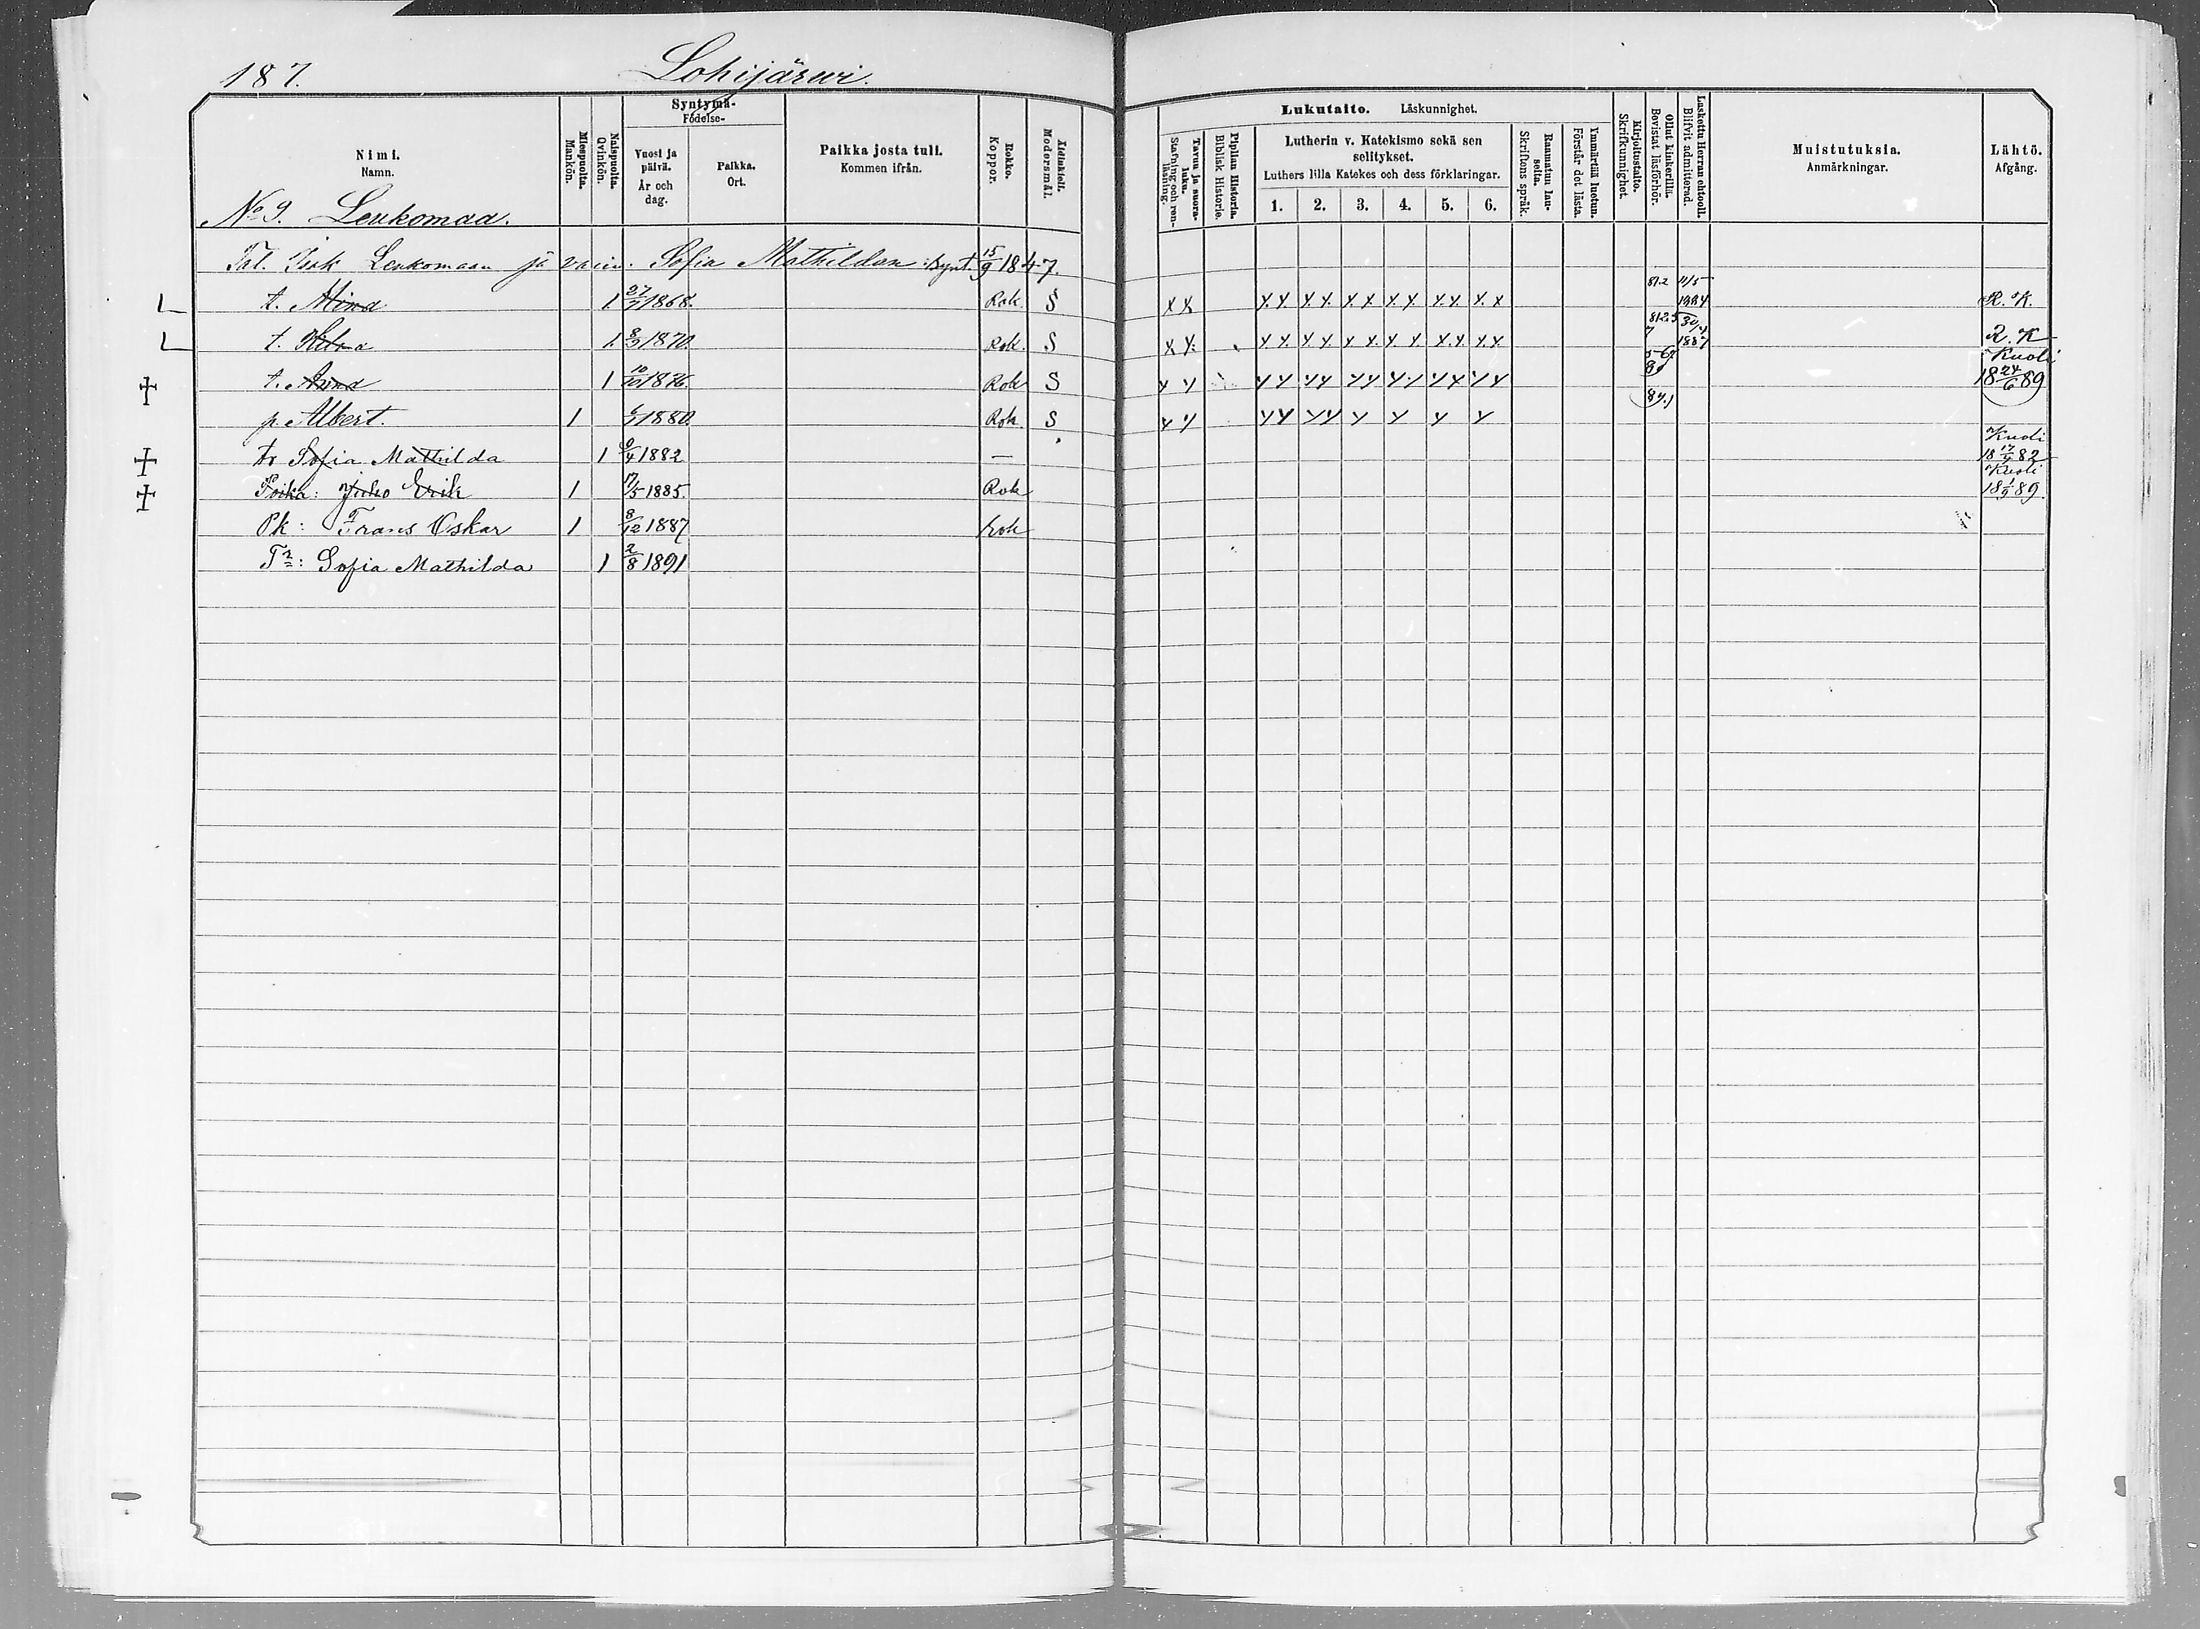 187.
Lohijärwi.
Nimi.
Namn.
Miespuolia.
Mankön.
Naispuolia.
Qvinkön.
Syntymä-
Födelse-
Vuosi ja
päivä.
År och
dag.
Paikka.
Ort.
Paikka josta tuli.
Kommen ifrån.
Rokko.
Koppor.
Äidinkieli.
Modersmål.
Lukutaito. Läskunnighet.
Tavuu ja suora-
luku.
Stafning och ren-
läsning.
Piplian Historia.
Biblisk Historie.
Lutherin v. Katekismo sekä sen
selitykset.
Luthers lilla Katekes och dess förklaringar.
1. 2. 3. 4. 5. 6.
Raamatun lau-
seita.
Skriftens språk.
Ymmärtää luetun.
Förstår det lästa.
Kirjoitustaito.
Skrifkunnighet.
Ollut kinkerillä.
Bevistat läsförhör.
Laskettu Herran ehtooll.
Blifvit admitterad.
Muistutuksia.
Anmärkningar.
Lähtö.
Afgång.
No 9. Leukomaa.
Tal. Isak Leukomaan ja vaim. Sofia Mathildan: Synt. 15/9 1847.
t. Mina 1 27/7 1868. Rok. S x x x x x x x x x x x x x x 81.2 11/5 1884 R. K.
t. Hilda 1 8/3 1870. Rok. S x x x x x x x x x x x x x x 30/1 1887 R. K
t. Anna 1 10/10 1876. Rok S x x x x x x x x x x x x x x Kuoli 18 24/6 89
p. Albert. 1 1880. Rok. S x x x x x x x x x x
tr Sofia Mathilda 1 9/4 1882 — Kuoli 18 17/4 82
Poika: Juho Erik 1 17/5 1885. Rok Kuoli 18 1/9 89.
Pk: Frans Oskar 1 8/12 1887 Rok
Tr: Sofia Mathilda 1 2/8 1891